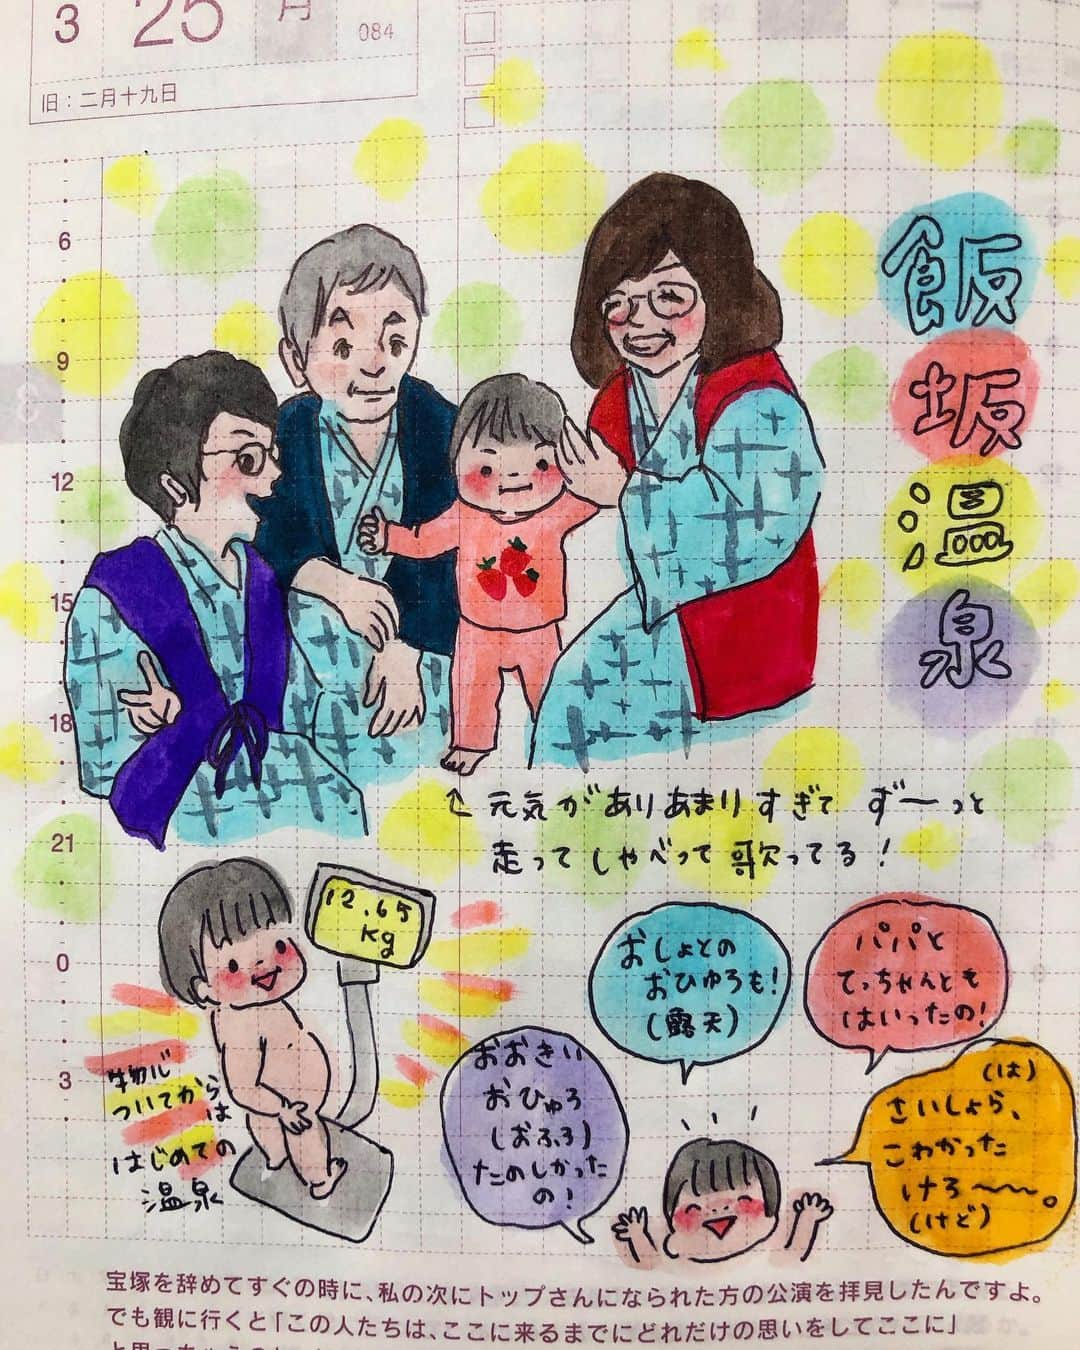 3
25
月
084
旧：二月十九日
6
9
12
15
18
21
0
3
飯坂温泉
↑元気がありあまりすぎて ず〜っと
走ってしゃべって歌ってる！
12.65
kg
物心
ついてから
は
はじめての
温泉
おしょとの
おひゅろも！
(露天)
パパと
てっちゃんとも
はいったの！
おおきい
おひゅろ
(おふろ)
たのしかった
の！
(は)
さいしょら、
こわかった
けろ〜〜。
(けど)
宝塚を辞めてすぐの時に、私の次にトップさんになられた方の公演を拝見したんですよ。
でも観に行くと「この人たちは、ここに来るまでにどれだけの思いをしてここに」